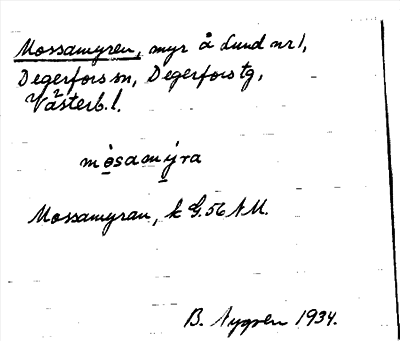 Mossamyren, myr å Lund nr 1,
Degerfors sn, Degerfors tg,
Västerb. l.
mòsamýra
Mossamyran, k G. 56 N M.
B. Nygren 1934.